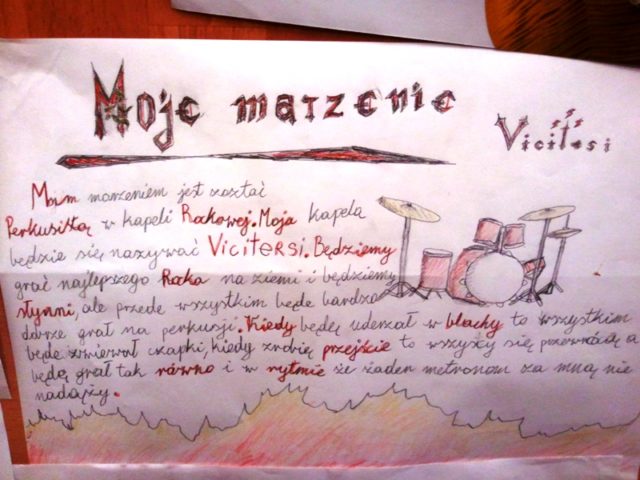 Moje marzenie
Vicitersi
Moim marzeniem jest zostać
Perkusistą w kapeli Rockowej. Moja kapela
będzie się nazywać Vicitersi. Będziemy
grać najlepszego Rocka na ziemi i będziemy
słynni, ale przede wszystkim będe bardzo
dobrze grał na perkusji. Kiedy będę uderzał w blachy to wszystkim
będe zrywał czapki, kiedy zrobię przejście to wszyscy się poprzewracają a
będę grał tak równo i w rytmie że żaden metronom za mną nie
nadąży.